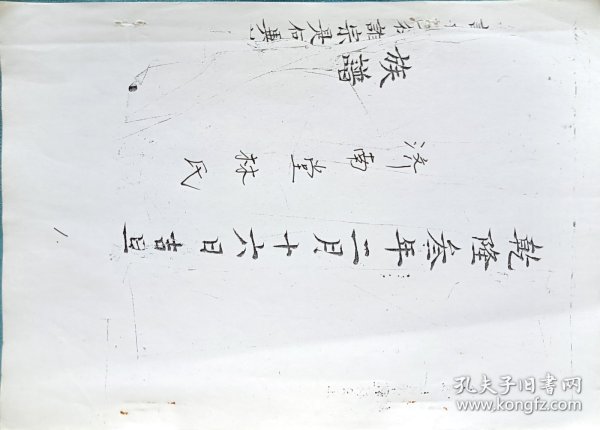 乾隆叁年三月十六日吉旦
济南堂林氏
族譜
孔夫子旧书网
www.kongfz.com